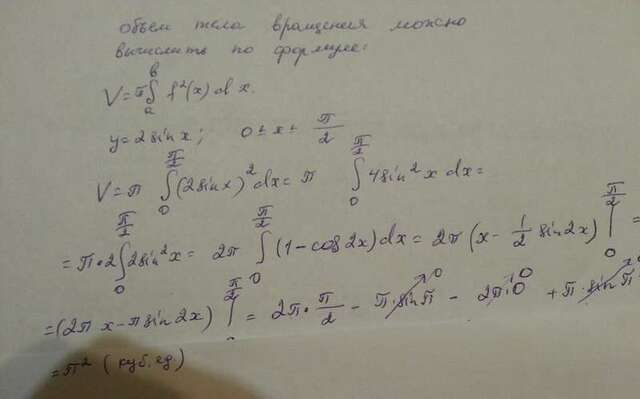 объем тела вращения можно
вычислить по формуле:
V = π ∫ₐᵇ f²(x) dx.
y = 2 sin x; 0 ≤ x ≤ π/2
V = π ∫₀^(π/2) (2 sin x)² dx = π ∫₀^(π/2) 4 sin² x dx =
= π • 2 ∫₀^(π/2) 2 sin² x = 2π ∫₀^(π/2) (1 - cos 2x) dx = 2π (x - 1/2 sin 2x) |₀^(π/2) =
= (2π x - π sin 2x) |₀^(π/2) = 2π • π/2 - π • sin π → 0 - 2π • 0 → 0 + π • sin π → 0
= π² (куб. ед.)